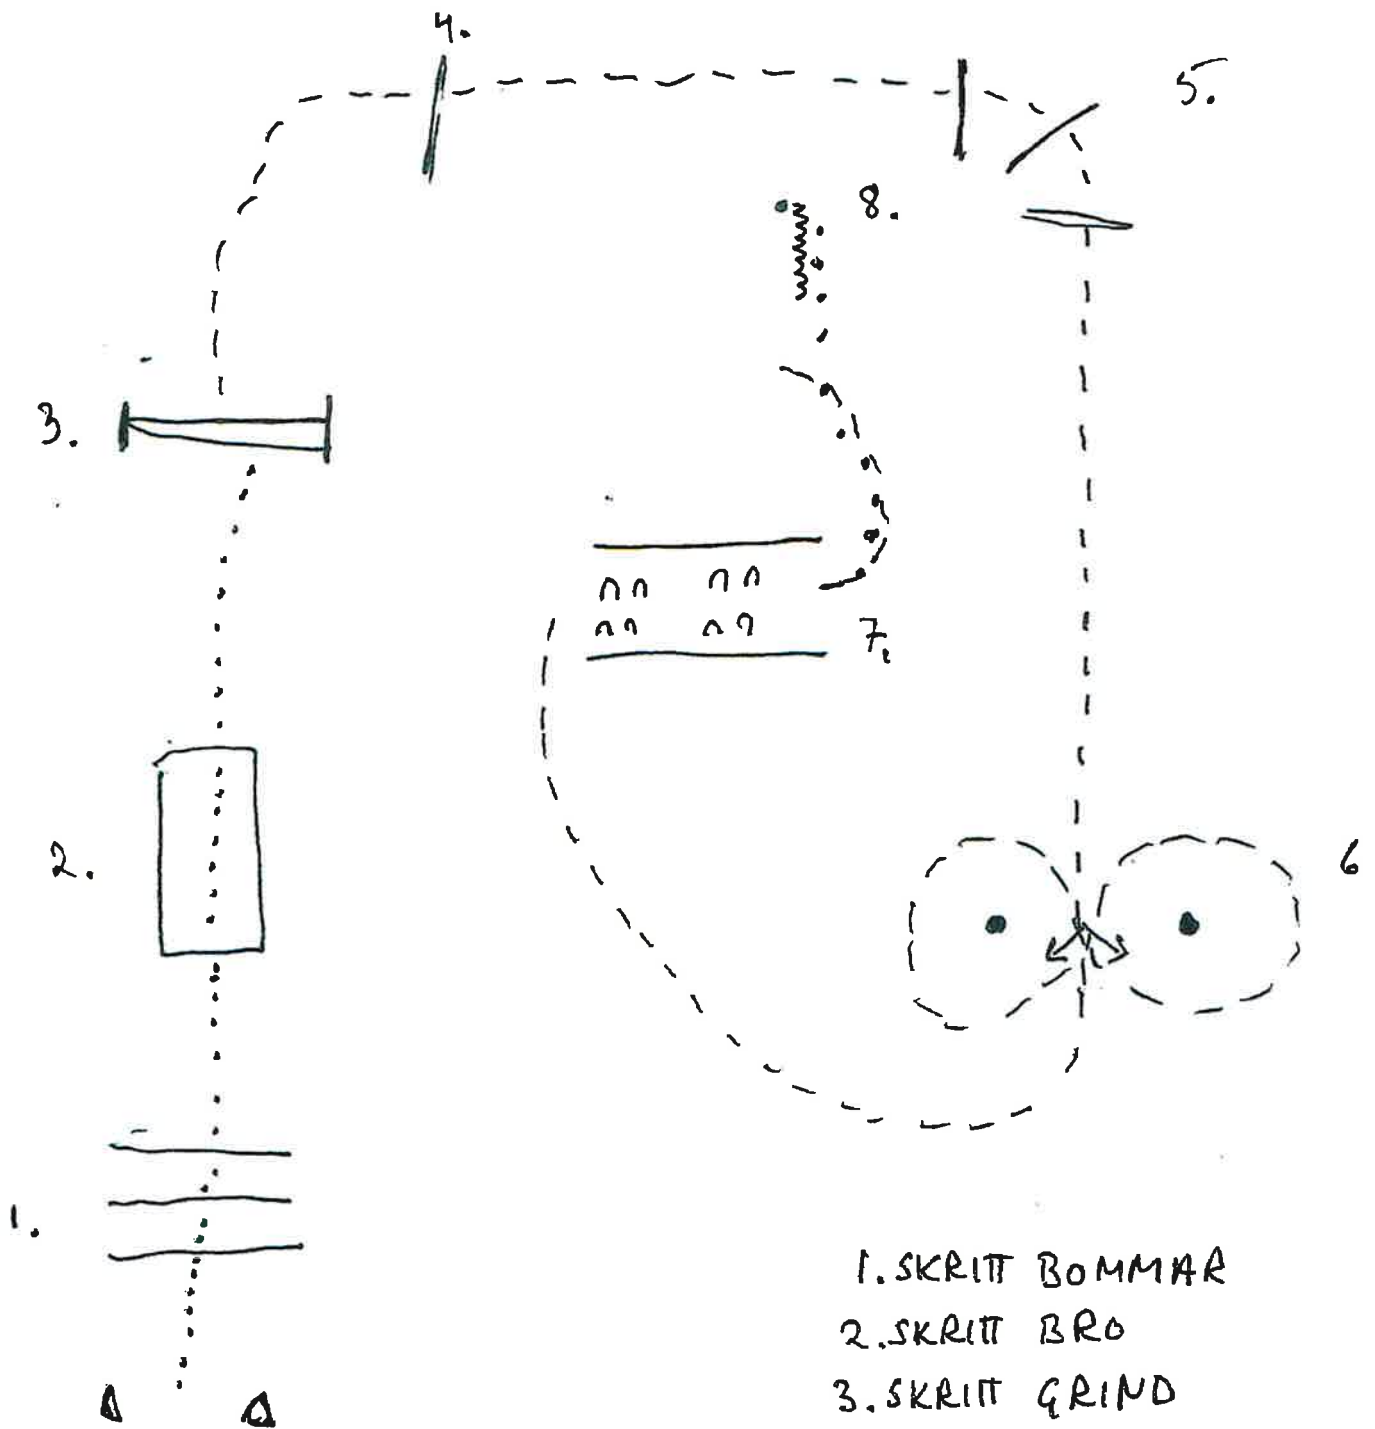 4.
5.
8.
3.
7.
2.
6
1.
1. SKRITT BOMMAR
2. SKRITT BRO
3. SKRITT GRIND